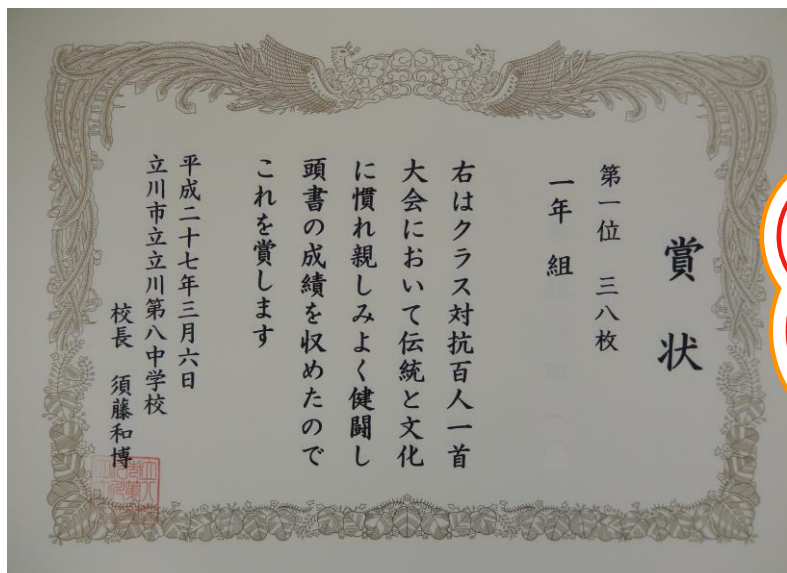 賞状
第一位 三八枚
一年 組
右はクラス対抗百人一首
大会において伝統と文化
に慣れ親しみよく健闘し
頭書の成績を収めたので
これを賞します
平成二十七年三月六日
立川市立立川第八中学校
校長 須藤和博